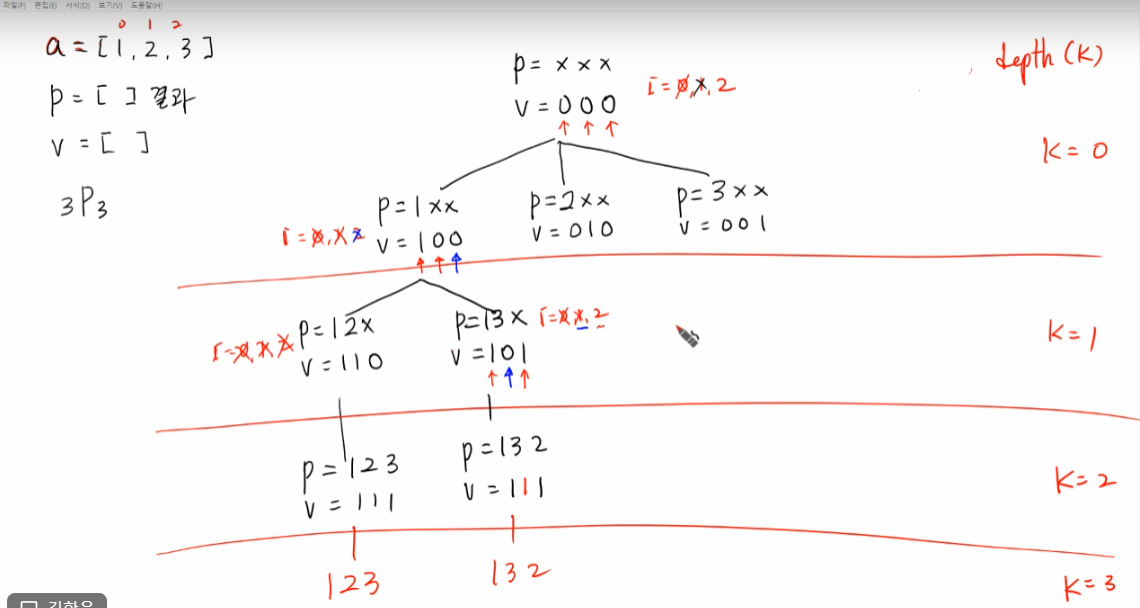 파일(F) 편집(E) 서식(O) 보기(V) 도움말(H)
0 1 2
a = [1, 2, 3]
p = [ ] 결과
v = [ ]
3P3
depth (K)
p = x x x
v = 0 0 0
i = 0, 1, 2
K = 0
p = 1 x x
v = 1 0 0
i = 0, 1 2
p = 2 x x
v = 0 1 0
p = 3 x x
v = 0 0 1
p = 1 2 x
v = 1 1 0
p = 1 3 x
v = 1 0 1
K = 1
p = 1 2 3
v = 1 1 1
p = 1 3 2
v = 1 1 1
K = 2
1 2 3
1 3 2
K = 3